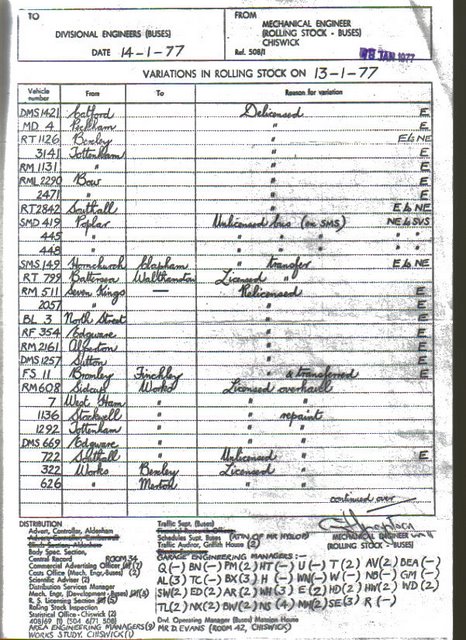 TO
DIVISIONAL ENGINEERS (BUSES)
DATE 14-1-77
FROM
MECHANICAL ENGINEER
(ROLLING STOCK - BUSES)
CHISWICK
Ref. 508/1
JAN 1977
VARIATIONS IN ROLLING STOCK ON 13-1-77
Vehicle number From To Reason for variation
DMS1421 Catford Delicensed E
MD 4 Peckham " E
RT1126 Bexley " E to NE
3141 Tottenham " E
RM1131 " " E
RML2290 Bow " E
2471 " " E
RT2842 Southall " E to NE
SMD 419 Poplar Unlicensed bus (on SMS) NE to SVS
445 " " " " " " "
448 " " " " " " "
SMS149 Hornchurch Clapham " transfer E to NE
RT 799 Battersea Walthamstow Licensed "
RM 511 Seven Kings — Relicensed E
2057 " " E
BL 3 North Street " E
RF 354 Edgware " E
RM2161 Alperton " E
DMS1257 Sutton " E
FS 11 Bromley Finchley " & transferred E
RM608 Sidcup Works Licensed overhaul
7 West Ham " " "
1136 Stockwell " " repaint
1292 Tottenham " " "
DMS 669 Edgware " " "
722 Southall " Unlicensed " E
322 Works Bexley Licensed "
626 " Merton " "
continued over
DISTRIBUTION
Advert. Controller, Aldenham
Body Spec. Section,
Central Record ROOM 34
Commercial Advertising Officer (7)
Costs Office (Mech. Engr. Buses) (2)
Scientific Adviser (2)
Distribution Services Manager
Mech. Engr. (Development - Buses)
R. S. Licensing Section
Rolling Stock Inspection
Statistical Office - Chiswick (2)
AREA ENGINEERING MANAGERS
WORKS STUDY. CHISWICK (1)
Traffic Supt. (Buses)
Schedules Supt. (Buses) (ATN. OF MR HYSLOP)
Traffic Auditor, Griffith House (2)
MECHANICAL ENGINEER
(ROLLING STOCK - BUSES)
GARAGE ENGINEERING MANAGERS:-
Q(-) BN(-) PM(2) HT(-) U(-) T(2) AV(2) BEA(-)
AL(3) TC(-) BX(3) H(-) WN(-) W(-) NB(-) GM(-)
SW(2) ED(2) AR(2) WH(3) E(2) HD(2) HW(2) WD(2)
TL(2) NX(2) BW(2) NS(4) NH(2) SE(3) R(-)
Divl. Operating Manager (Buses) Manson House
MR D. EVANS (ROOM 42, CHISWICK)